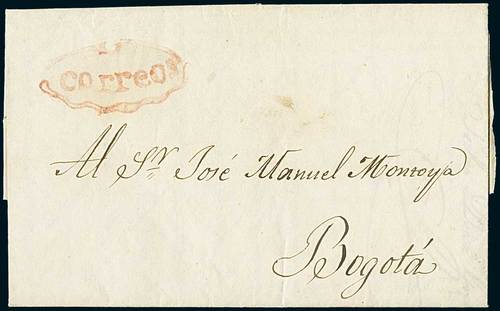 Correos
Al Sr. José Manuel Montoya
Bogotá